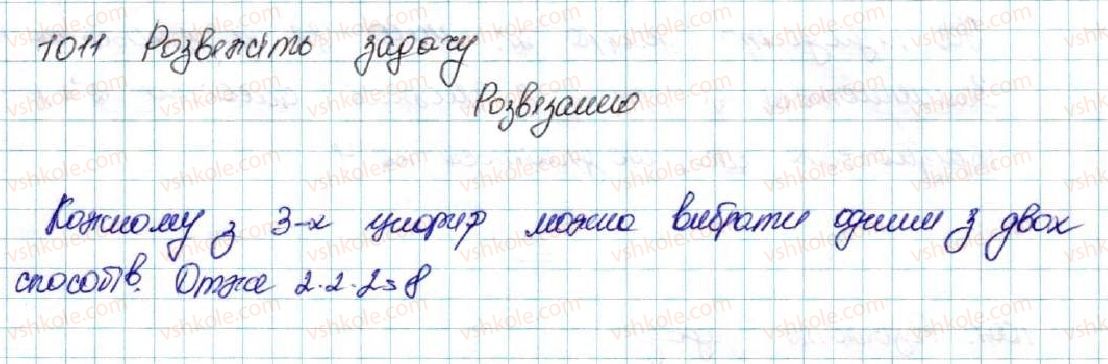 1011 Розвяжіть задачу
Розвязанню
Кожному з 3-х цифир можна вибрати одним з двох
способів. Отже 2·2·2=8
vshkole.com